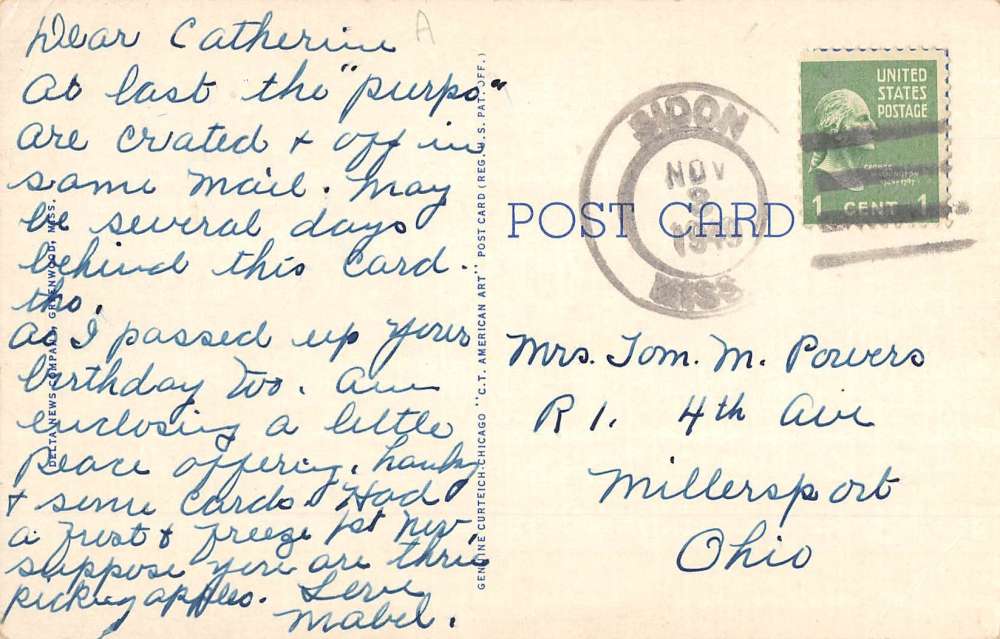 Dear Catherine
At last the "purps"
are crated & off in
same mail. May
be several days
behind this card.
tho.
As I passed up your
birthday too. Am
enclosing a little
peace offering, hanky
& some cards. Had
a frost & freeze 1st Nov
suppose you are thru
picking apples. Love
Mabel.
A
DELTA NEWS COMPANY, GREENWOOD, MISS.
GENUINE CURTEICH-CHICAGO "C.T. AMERICAN ART" POST CARD (REG. U.S. PAT. OFF.)
POST CARD
SIDON
NOV
3
MISS
UNITED
STATES
POSTAGE
GEORGE
WASHINGTON
1 CENT 1
Mrs. Tom. M. Powers
R 1. 4th Ave
Millersport
Ohio